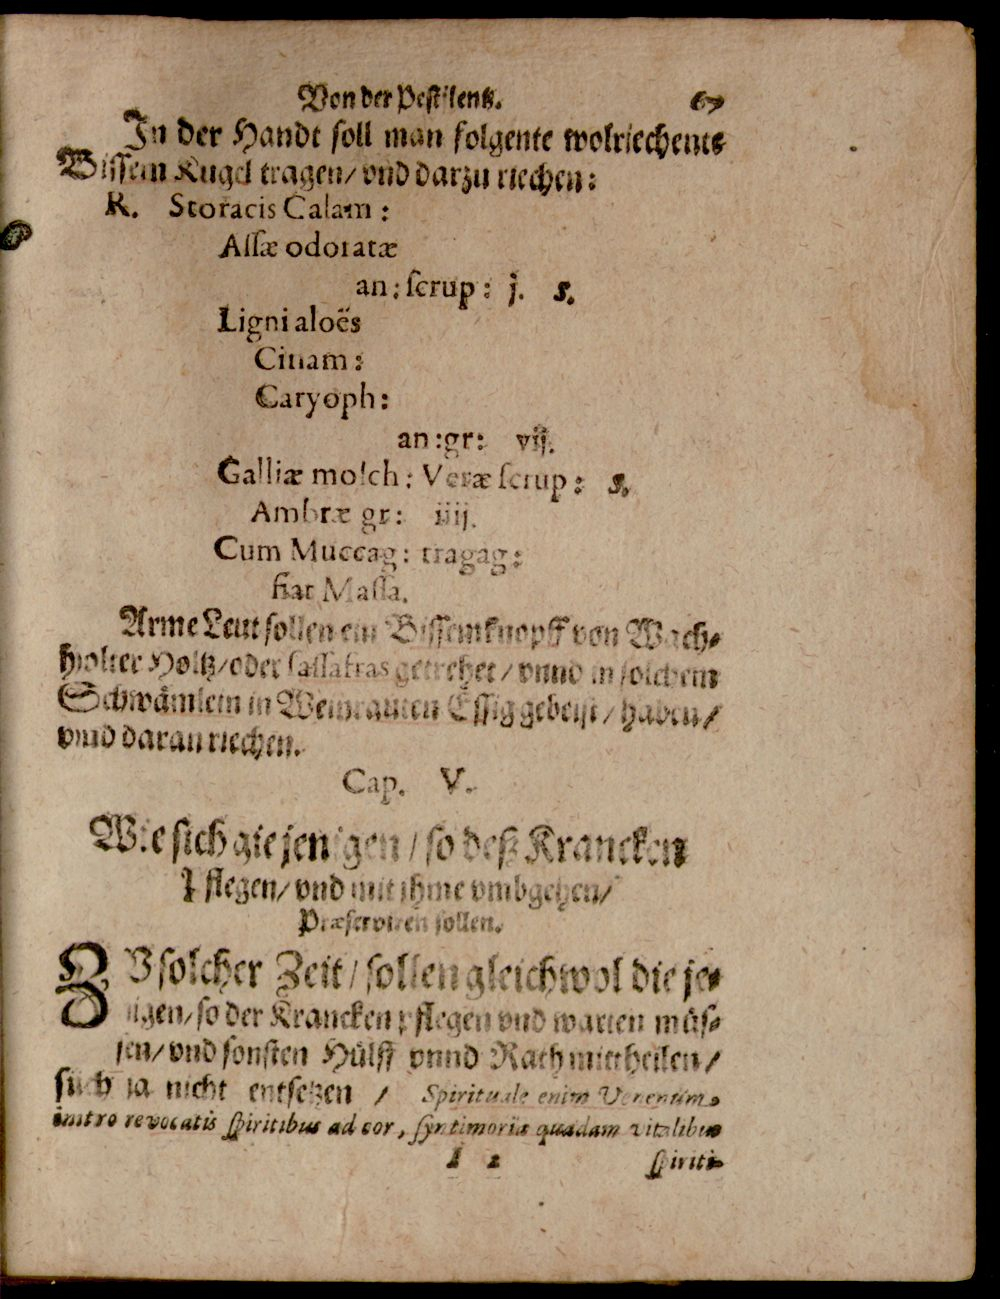 Von der Pestilentz. 67
In der Handt soll man folgente wolriechente
Bissem Kugel tragen/ vnd darzu riechen:
R. Storacis Calam:
Assæ odoratæ
an: scrup: j. s.
Ligni aloës
Cinam:
Caryoph:
an: gr: vij.
Galliæ mosch: Veræ scrup: s.
Ambræ gr: iiij.
Cum Muccag: tragag:
fiat Massa.
Arme Leut sollen ein Bissemknopff von Wach-
holter Holtz/ oder sassafras getrehet/ vnnd in solchem
Schwämlein in Weinrauten Essig gebeist/ haben/
vnd daran riechen.
Cap. V.
Wie sich diejenigen/ so deß Krancken
Pflegen/ vnd mit ihme vmbgehen/
Præserviren sollen.
ZV solcher Zeit/ sollen gleichwol die je-
nigen/ so der Krancken pflegen vnd warten müs-
sen/ vnd sonsten Hülff vnnd Rath mittheilen/
sich ja nicht entsetzen / Spirituale enim Venenum,
intro revocatis spiritibus ad cor, syntimoriæ quadam vitalibus
I 2 spiriti-